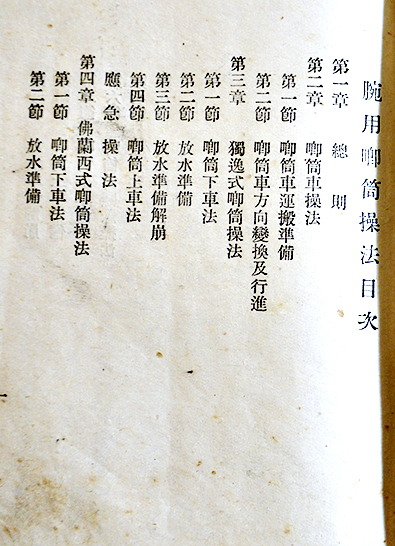 腕用喞筒操法目次
第一章 總則
第二章 喞筒車操法
第一節 喞筒車運搬準備
第二節 喞筒車方向變換及行進
第三章 獨逸式喞筒操法
第一節 喞筒下車法
第二節 放水準備
第三節 放水準備解崩
第四節 喞筒上車法
應急操法
第四章 佛蘭西式喞筒操法
第一節 喞筒下車法
第二節 放水準備